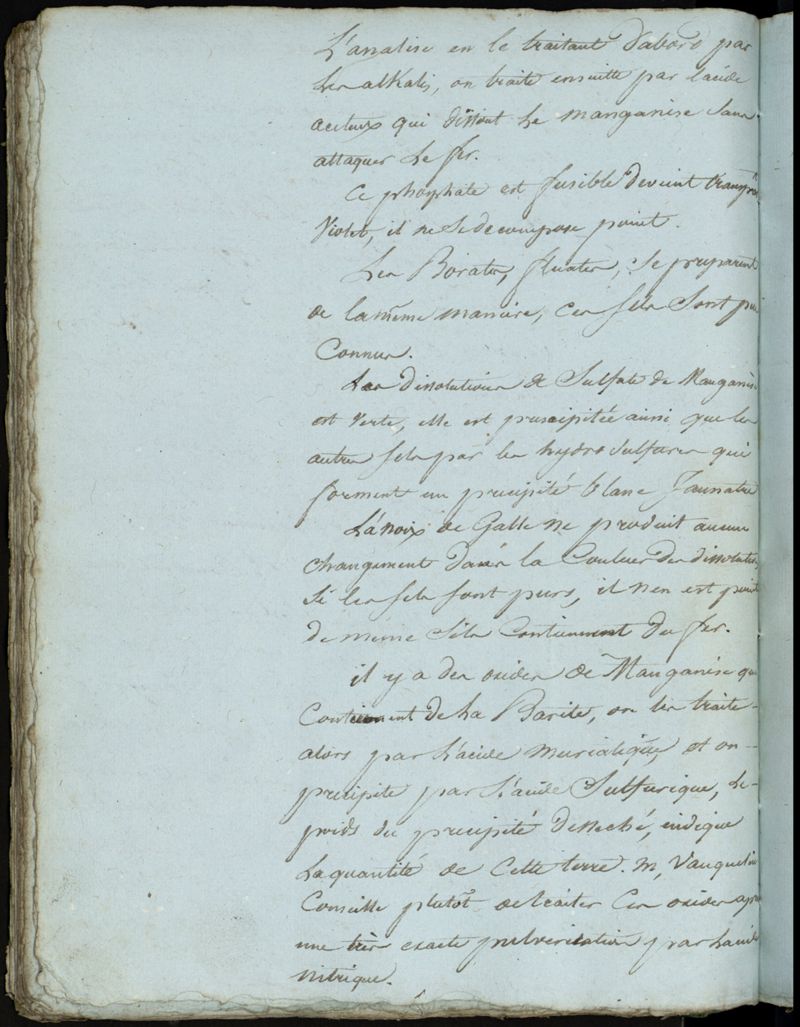 L'analise en le traitant d'abord par
les alkalis, on traite ensuitte par lacide
aceteux qui dissout le manganese sans
attaquer le fer.
Ce phosphate est fusible devient transp
Violet, il ne se decompose point.
Les Borates, fluates, se preparent
de la même maniere, ces sels sont peu
Connus.
Les dissolution de Sulfate de Manganes
est verte, elle est precipitée ainsi que les
autres sels par les hydro sulfures qui
forment un precipité blanc Jaunatre
La noix de Galle ne produit aucun
changement dans la Couleur des dissolution
si les sels sont purs, il n'en est point
de même s'ils Contiennent du fer.
il y a des oxides de Manganese qui
Contiennent de la Barite, on les traite
alors par l'acide muriatique, et on
precipite par l'acide Sulfurique, le
poids du precipité desseché, indique
la quantité de Cette terre. M, Vauquelin
Conseille plutôt de traiter Ces oxides apres
une très exacte pulverisation par lacide
nitrique.